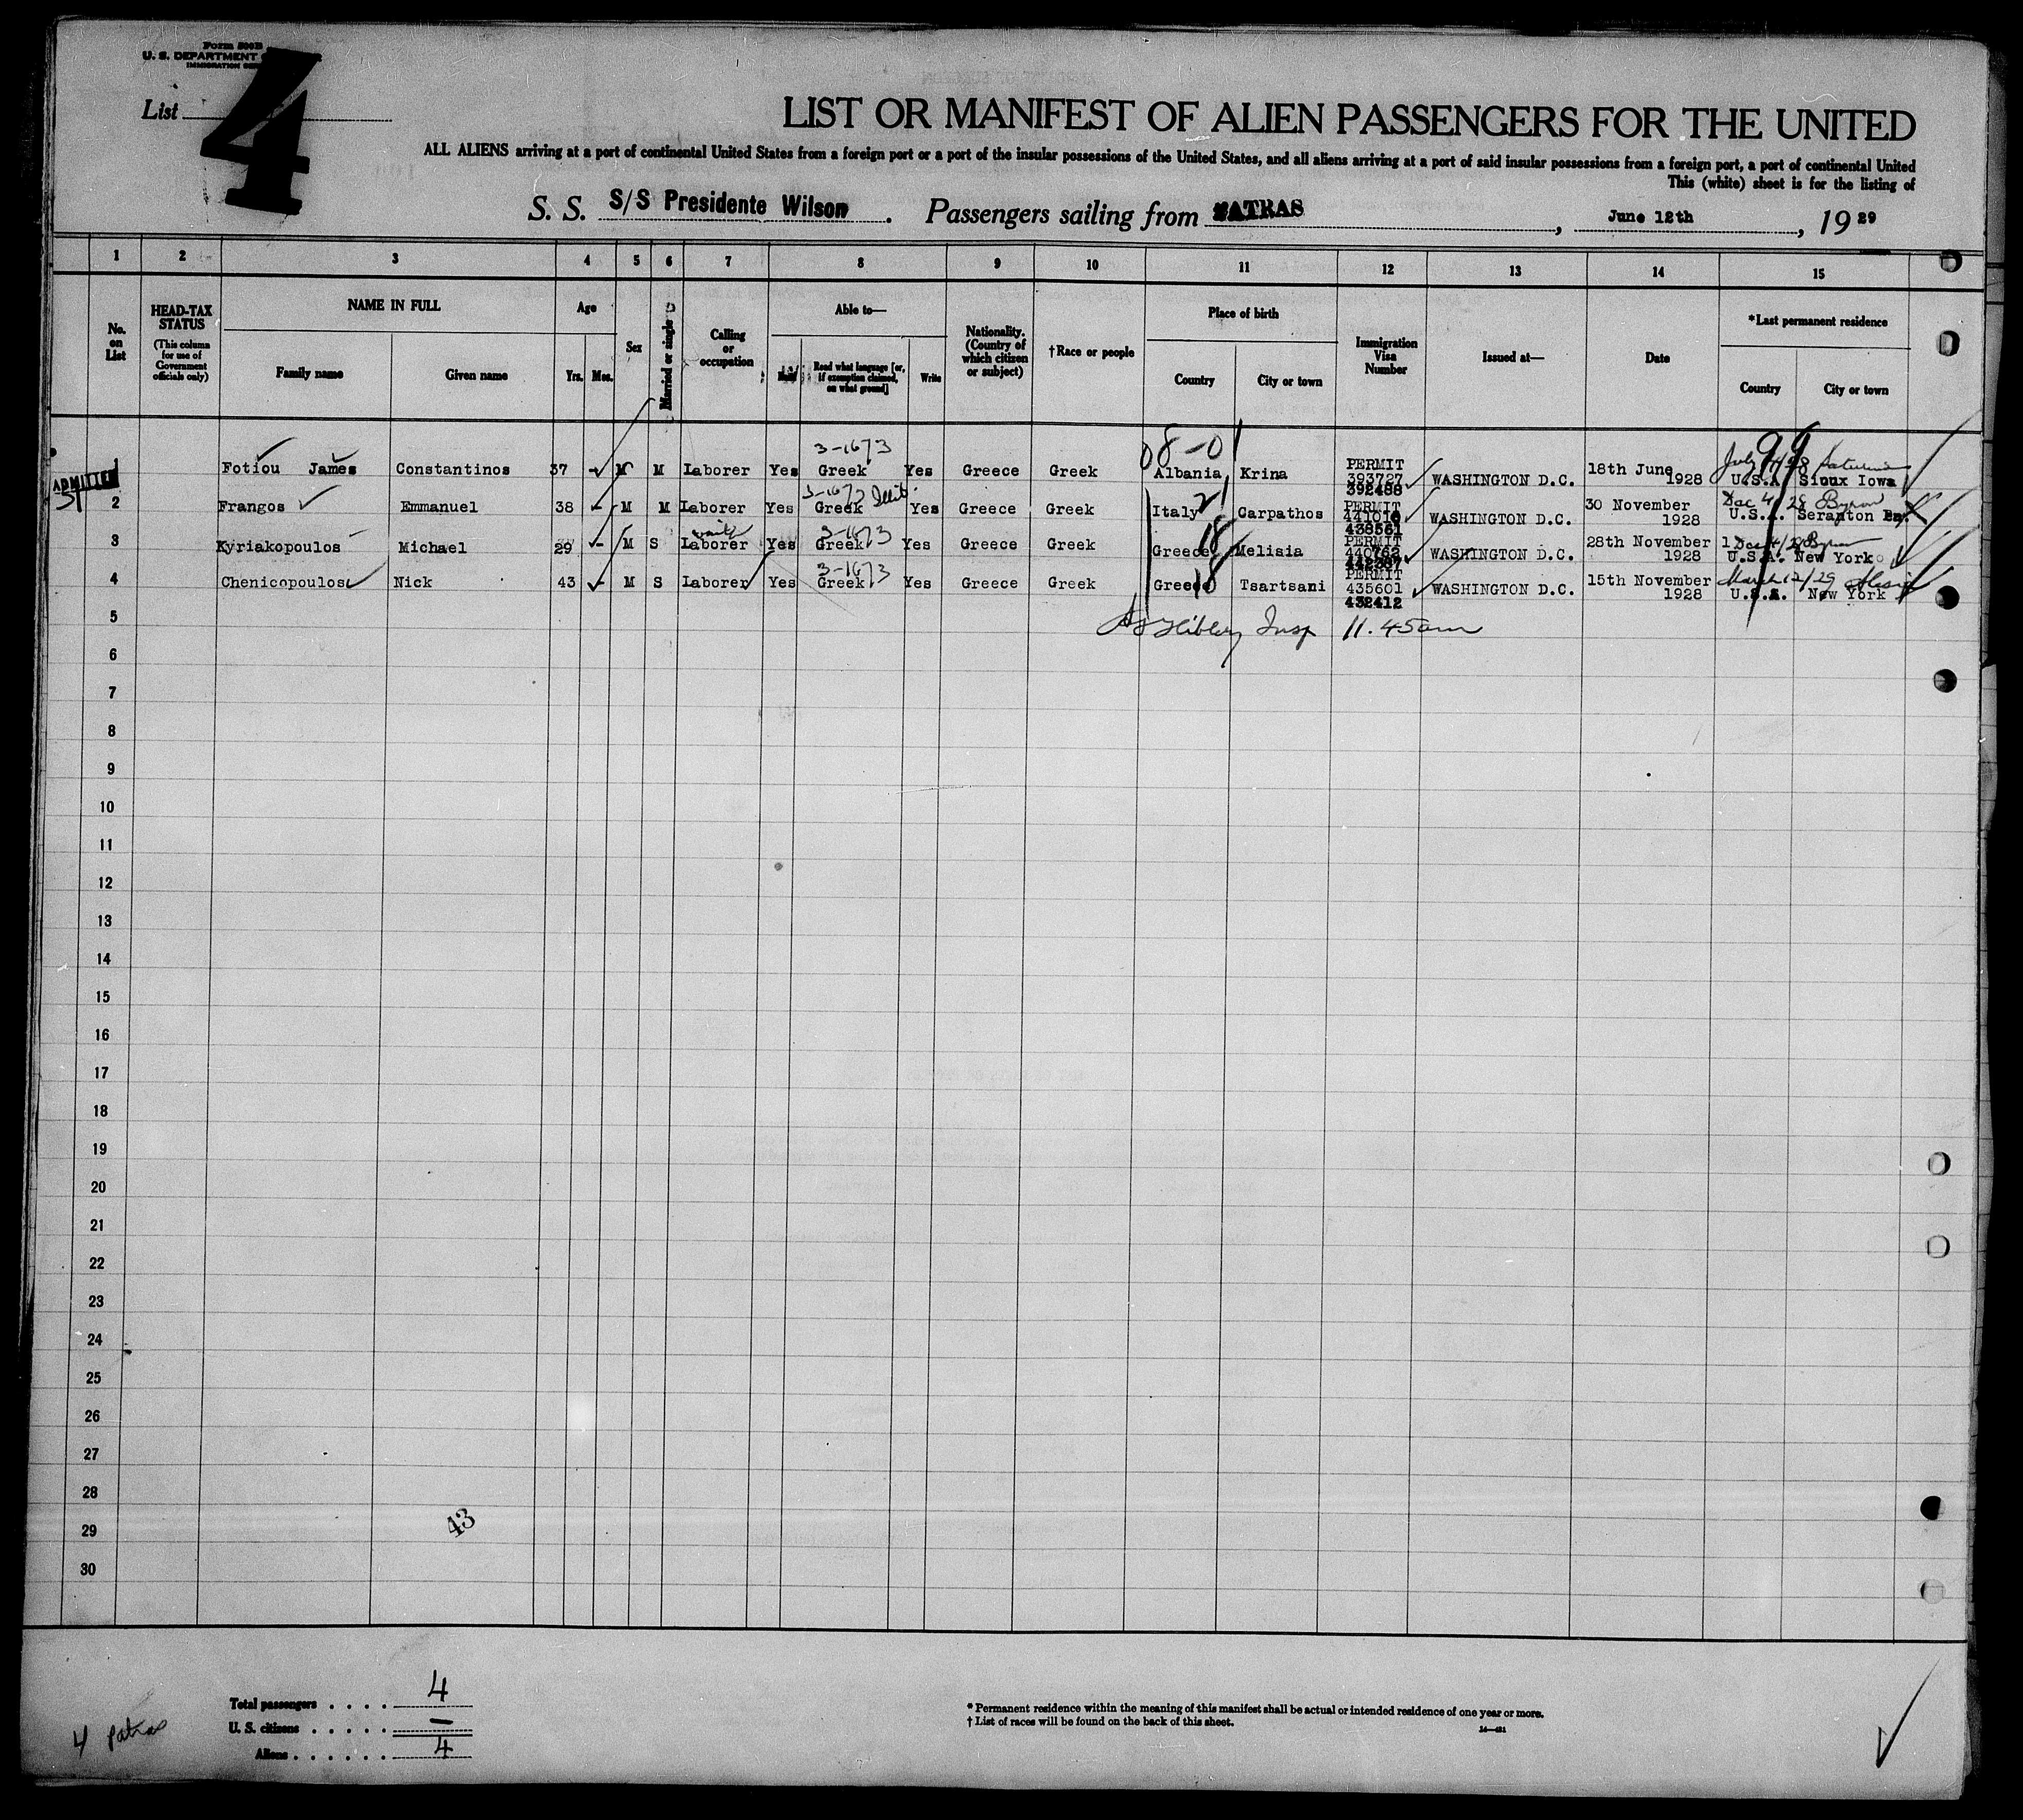 Form 500B
U. S. DEPARTMENT
IMMIGRATION
List 4
LIST OR MANIFEST OF ALIEN PASSENGERS FOR THE UNITED
ALL ALIENS arriving at a port of continental United States from a foreign port or a port of the insular possessions of the United States, and all aliens arriving at a port of said insular possessions from a foreign port, a port of continental United
This (white) sheet is for the listing of
S. S. S/S Presidente Wilson. Passengers sailing from PATRAS, June 12th, 1929
1 2 3 4 5 6 7 8 9 10 11 12 13 14 15
No. on List
HEAD-TAX STATUS
(This column for use of Government officials only)
NAME IN FULL
Family name Given name
Age
Yrs. Mos.
Sex
Married or single
Calling or occupation
Able to—
Read
Read what language [or, if exemption claimed, on what ground]
Write
Nationality. (Country of which citizen or subject)
†Race or people
Place of birth
Country City or town
Immigration Visa Number
Issued at—
Date
*Last permanent residence
Country City or town
3-1673 08-01 99
ADMITTED
1 Fotiou James Constantinos 37 M M Laborer Yes Greek Yes Greece Greek Albania Krina PERMIT 393727 392488 WASHINGTON D.C. 18th June 1928 U.S.A. Sioux Iowa
3-1673 21 Dec 4/28 Byron
2 Frangos Emmanuel 38 - M M Laborer Yes Greek Yes Greece Greek Italy Carpathos PERMIT 441016 438567 WASHINGTON D.C. 30 November 1928 U.S.A. Scranton Pa.
3-1673 18 Dec 4/28 Byron
3 Kyriakopoulos Michael 29 - M S Laborer Yes Greek Yes Greece Greek Greece Melisia PERMIT 440762 442387 WASHINGTON D.C. 28th November 1928 U.S.A. New York
3-1673 18 March 12/29
4 Chenicopoulos Nick 43 - M S Laborer Yes Greek Yes Greece Greek Greece Tsartsani PERMIT 435601 432412 WASHINGTON D.C. 15th November 1928 U.S.A. New York
5 Insp 11.45am
6
7
8
9
10
11
12
13
14
15
16
17
18
19
20
21
22
23
24
25
26
27
28
29
43
30
Total passengers . . . . 4
U. S. citizens . . . . . —
Aliens . . . . . . 4
4 Patras
* Permanent residence within the meaning of this manifest shall be actual or intended residence of one year or more.
† List of races will be found on the back of this sheet.